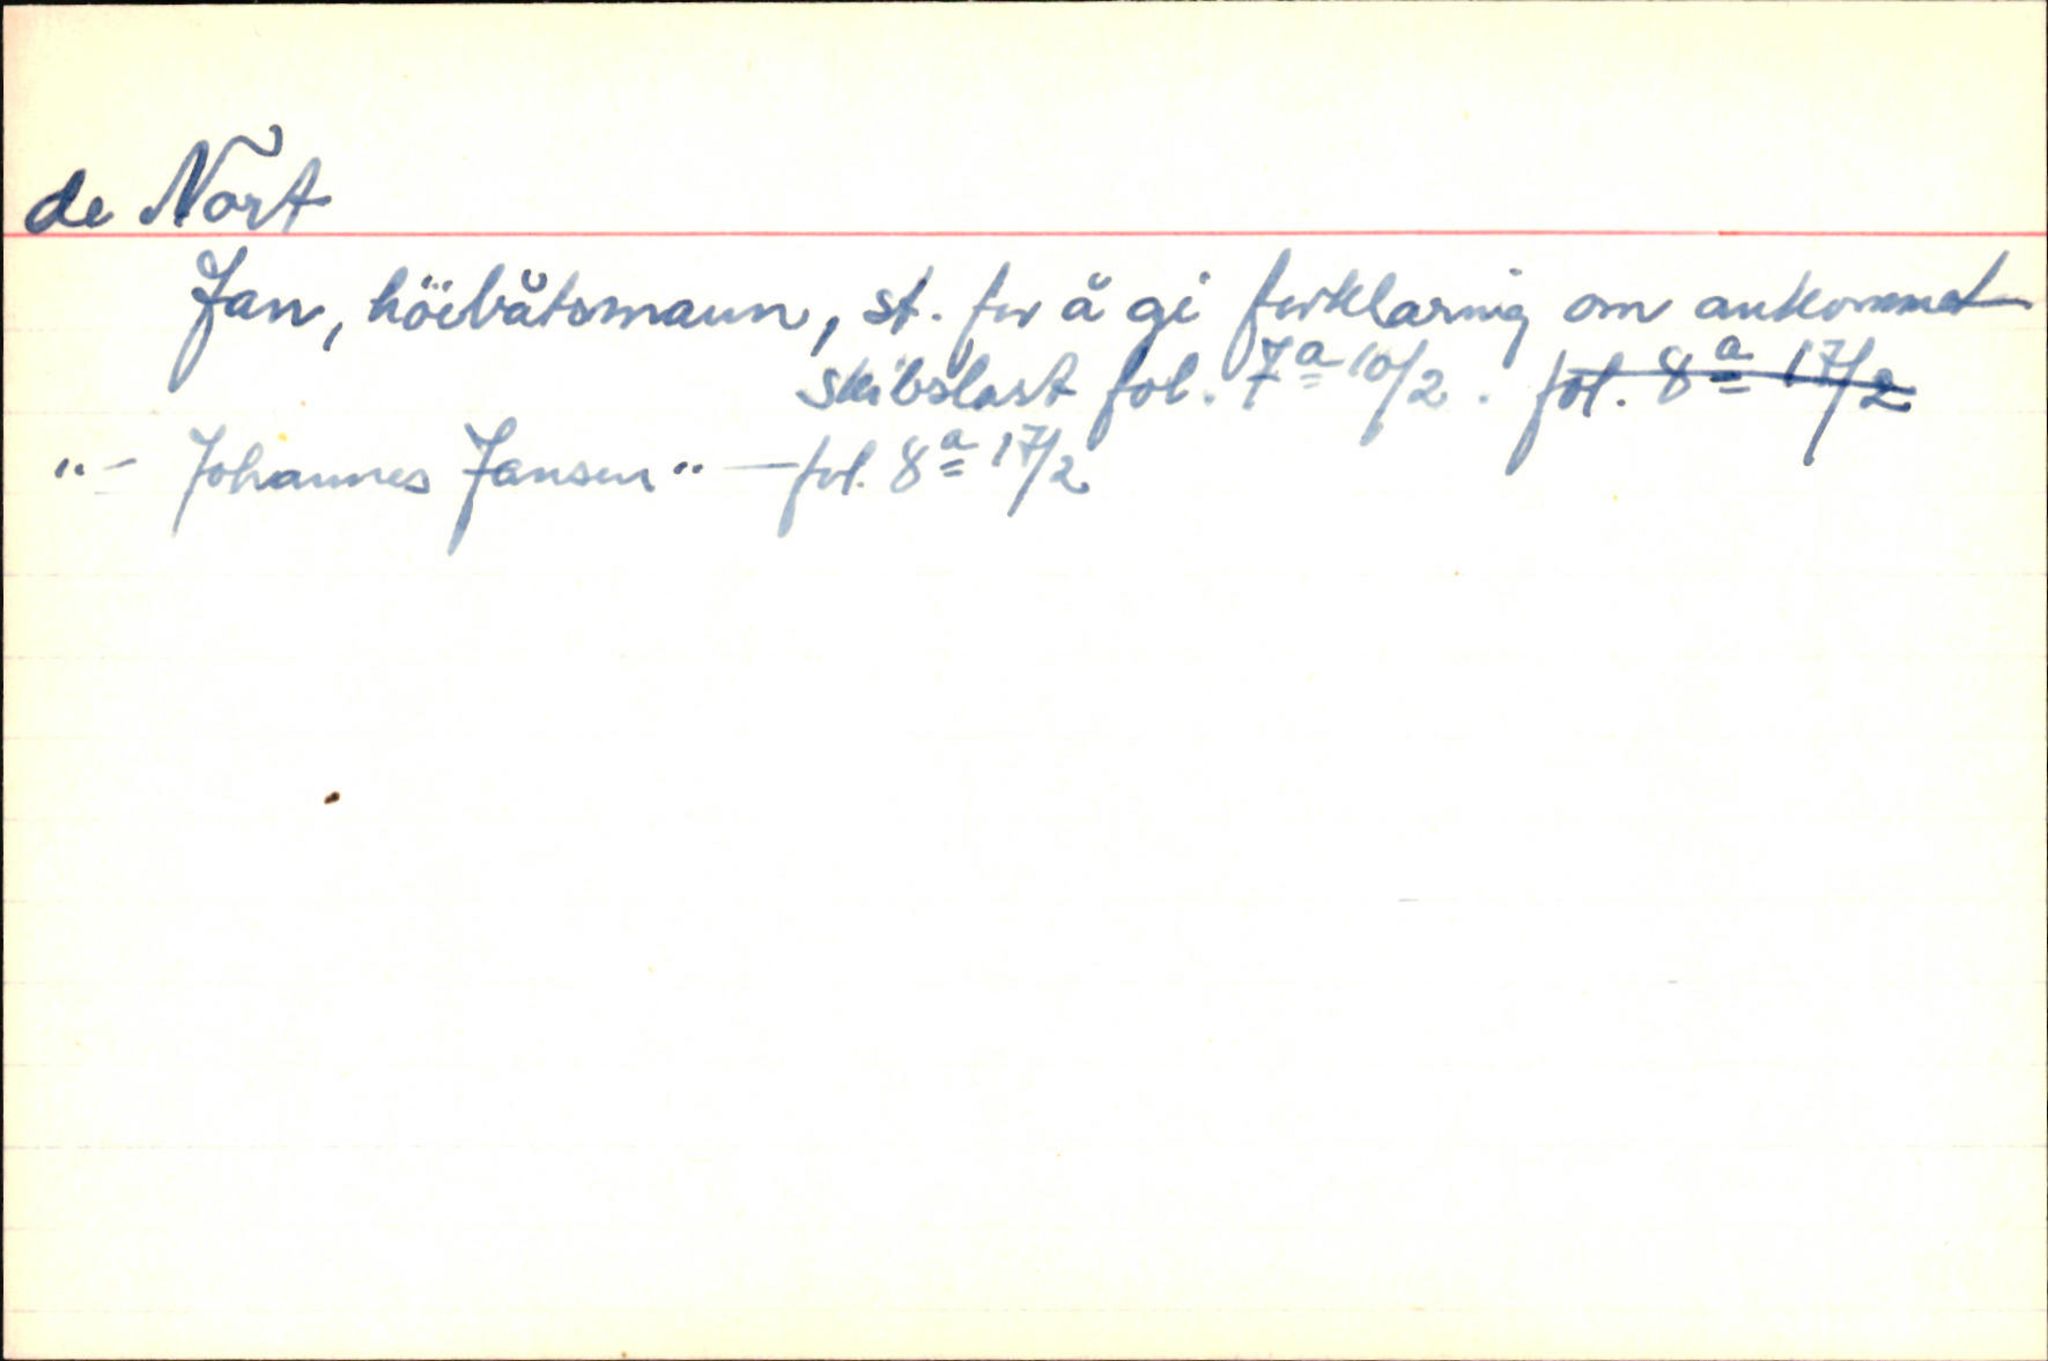 de Nort
Jan, höibåtsmann, st. for å gi forklaring om ankommet
skibslast fol. 7a 10/2. fol. 8a 17/2
"- Johannes Jansen "— fol. 8a 17/2